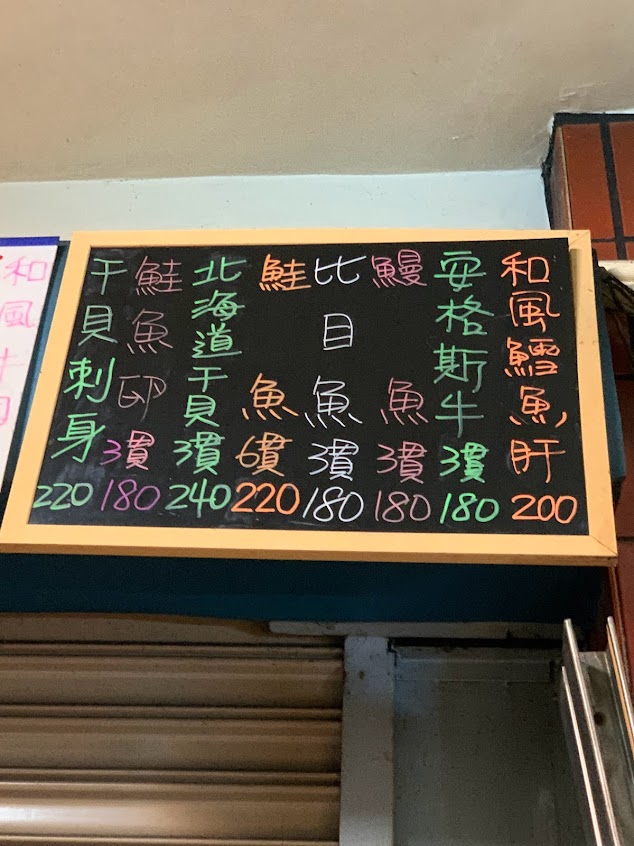 和風鱈魚肝200
安格斯牛3貫180
鰻魚3貫180
比目魚3貫180
鮭魚6貫220
北海道干貝3貫240
鮭魚卵3貫180
干貝刺身220
和風